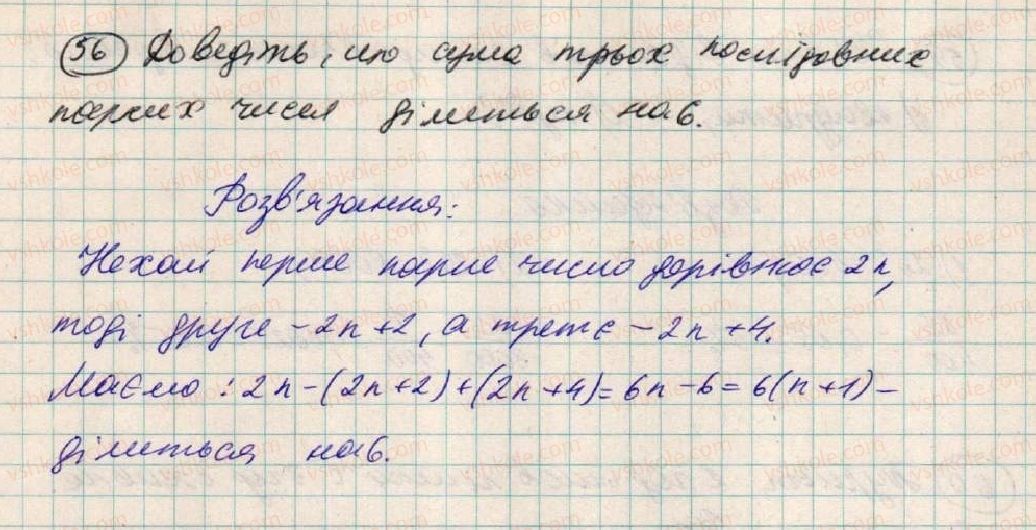 56 Доведіть, що сума трьох послідовних
парних чисел ділиться на 6.
Розв'язання:
Нехай перше парне число дорівнює 2n,
тоді друге – 2n+2, а третє – 2n+4.
Маємо: 2n-(2n+2)+(2n+4)=6n-6=6(n+1)–
ділиться на 6.